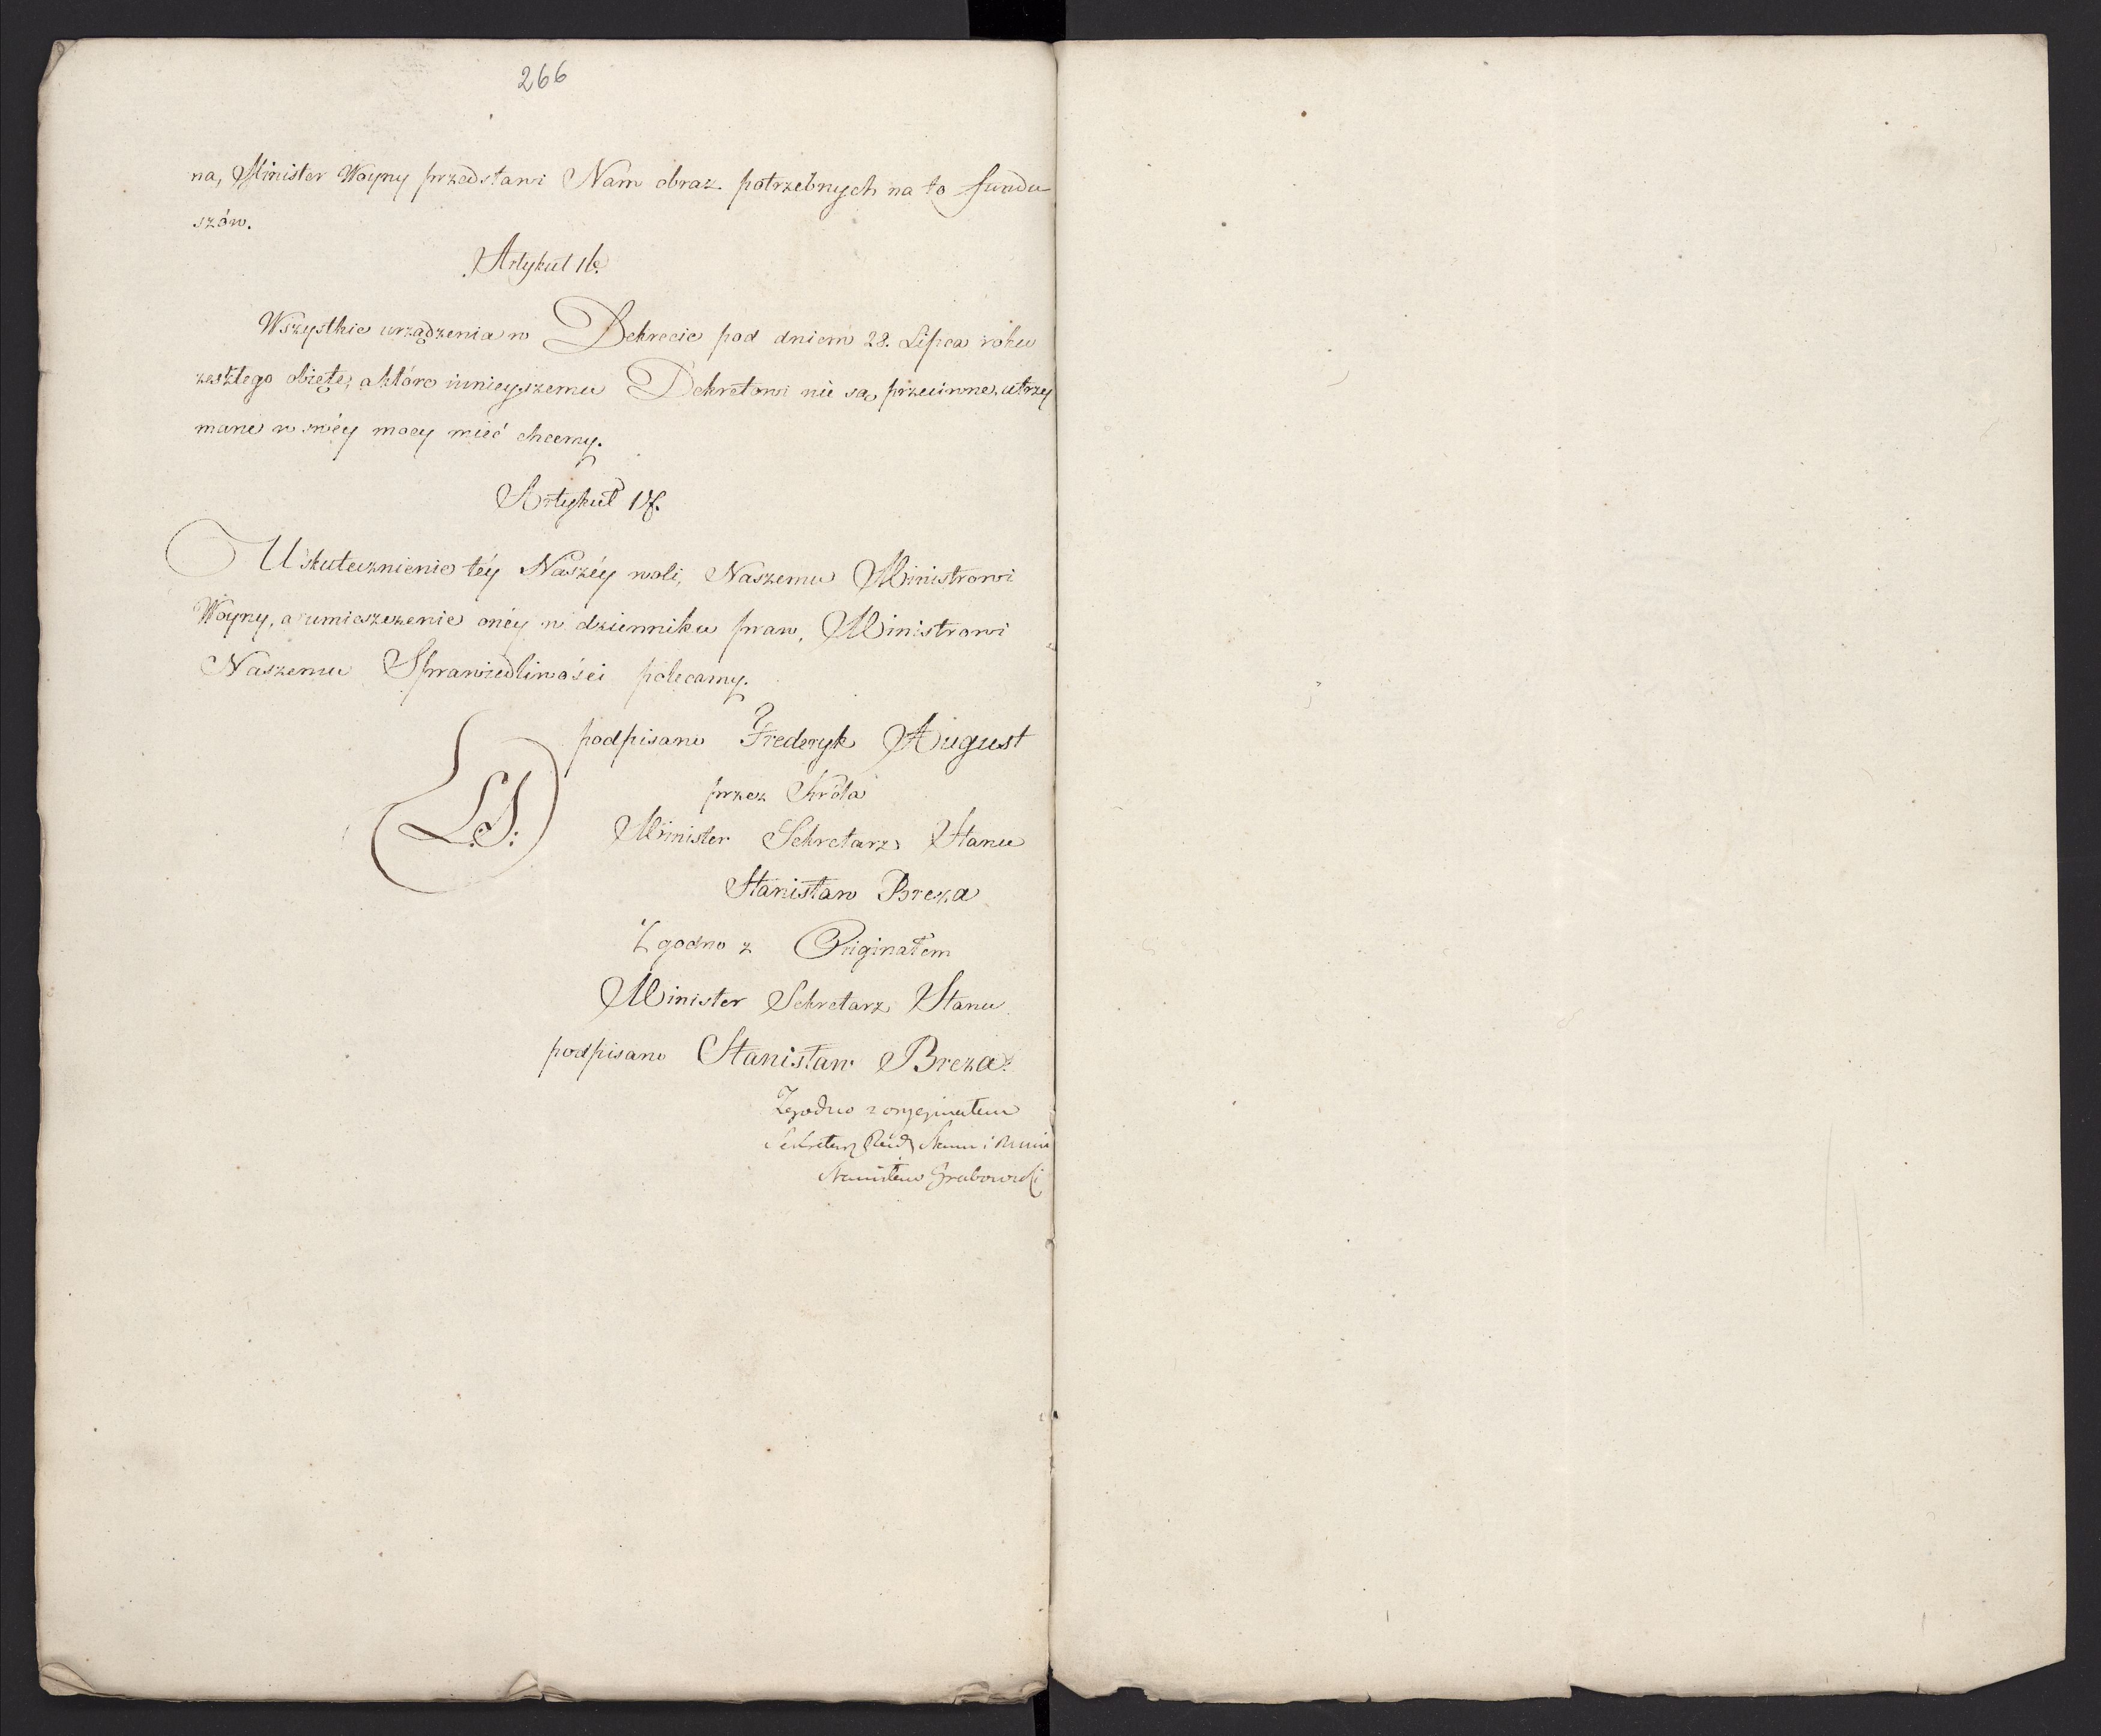 266
na, Minister Woyny przedstawi Nam obraz potrzebnych na to fundu
szów.
Artykuł 16.
Wszystkie urządzenia w Dekrecie pod dniem 28. Lipca roku
zeszłego obięte, a które ninieyszemu Dekretowi nie są przeciwne, utrzy
mane w swéy mocy mieć chcemy.
Artykuł 17.
Uskutecznienie téy Naszéy woli, Naszemu Ministrowi
Woyny, a umieszczenie onéy w dzienniku praw, Ministrowi
Naszemu Sprawiedliwości polecamy.
podpisano Frederyk August
przez Króla
L.S.
Minister Sekretarz Stanu
Stanisław Breza
Zgodno z Originałem
Minister Sekretarz Stanu
podpisano Stanisław Breza.
Zgodno z oryginałem
Sekretarz Rady Stanu i Minis
Stanisław Grabowski